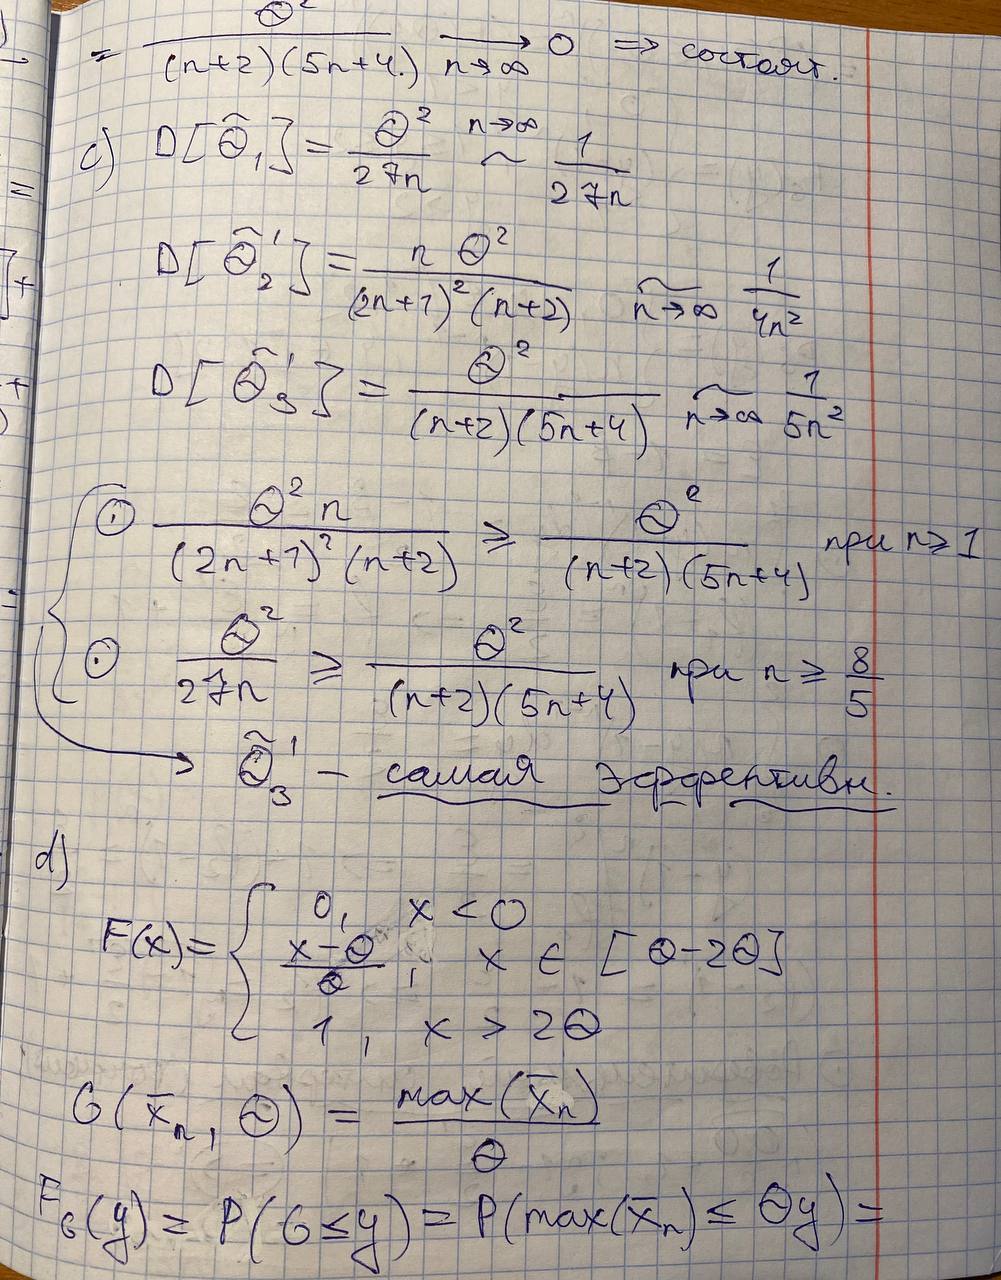 = Θ² / ((n+2)(5n+4.)) ⟶ n→∞ 0 => состоят.
c) D[Θ̃₁] = Θ²/(27n) ~ n→∞ 1/(27n)
D[Θ̃₂'] = n Θ² / ((2n+1)²(n+2)) ~ n→∞ 1/(4n²)
D[Θ̃₃'] = Θ² / ((n+2)(5n+4)) ~ n→∞ 1/(5n²)
⊙ Θ² n / ((2n+1)²(n+2)) ≥ Θ² / ((n+2)(5n+4)) при n ≥ 1
⊙ Θ²/(27n) ≥ Θ² / ((n+2)(5n+4)) при n ≥ 8/5
→ Θ̃₃' – самая эффективн.
d)
F(x) = { 0, x < 0
(x-Θ)/Θ, x ∈ [Θ-2Θ]
1, x > 2Θ
G(x̄ₙ, Θ) = max(x̄ₙ)/Θ
F_G(y) = P(G ≤ y) = P(max(x̄ₙ) ≤ Θy) =